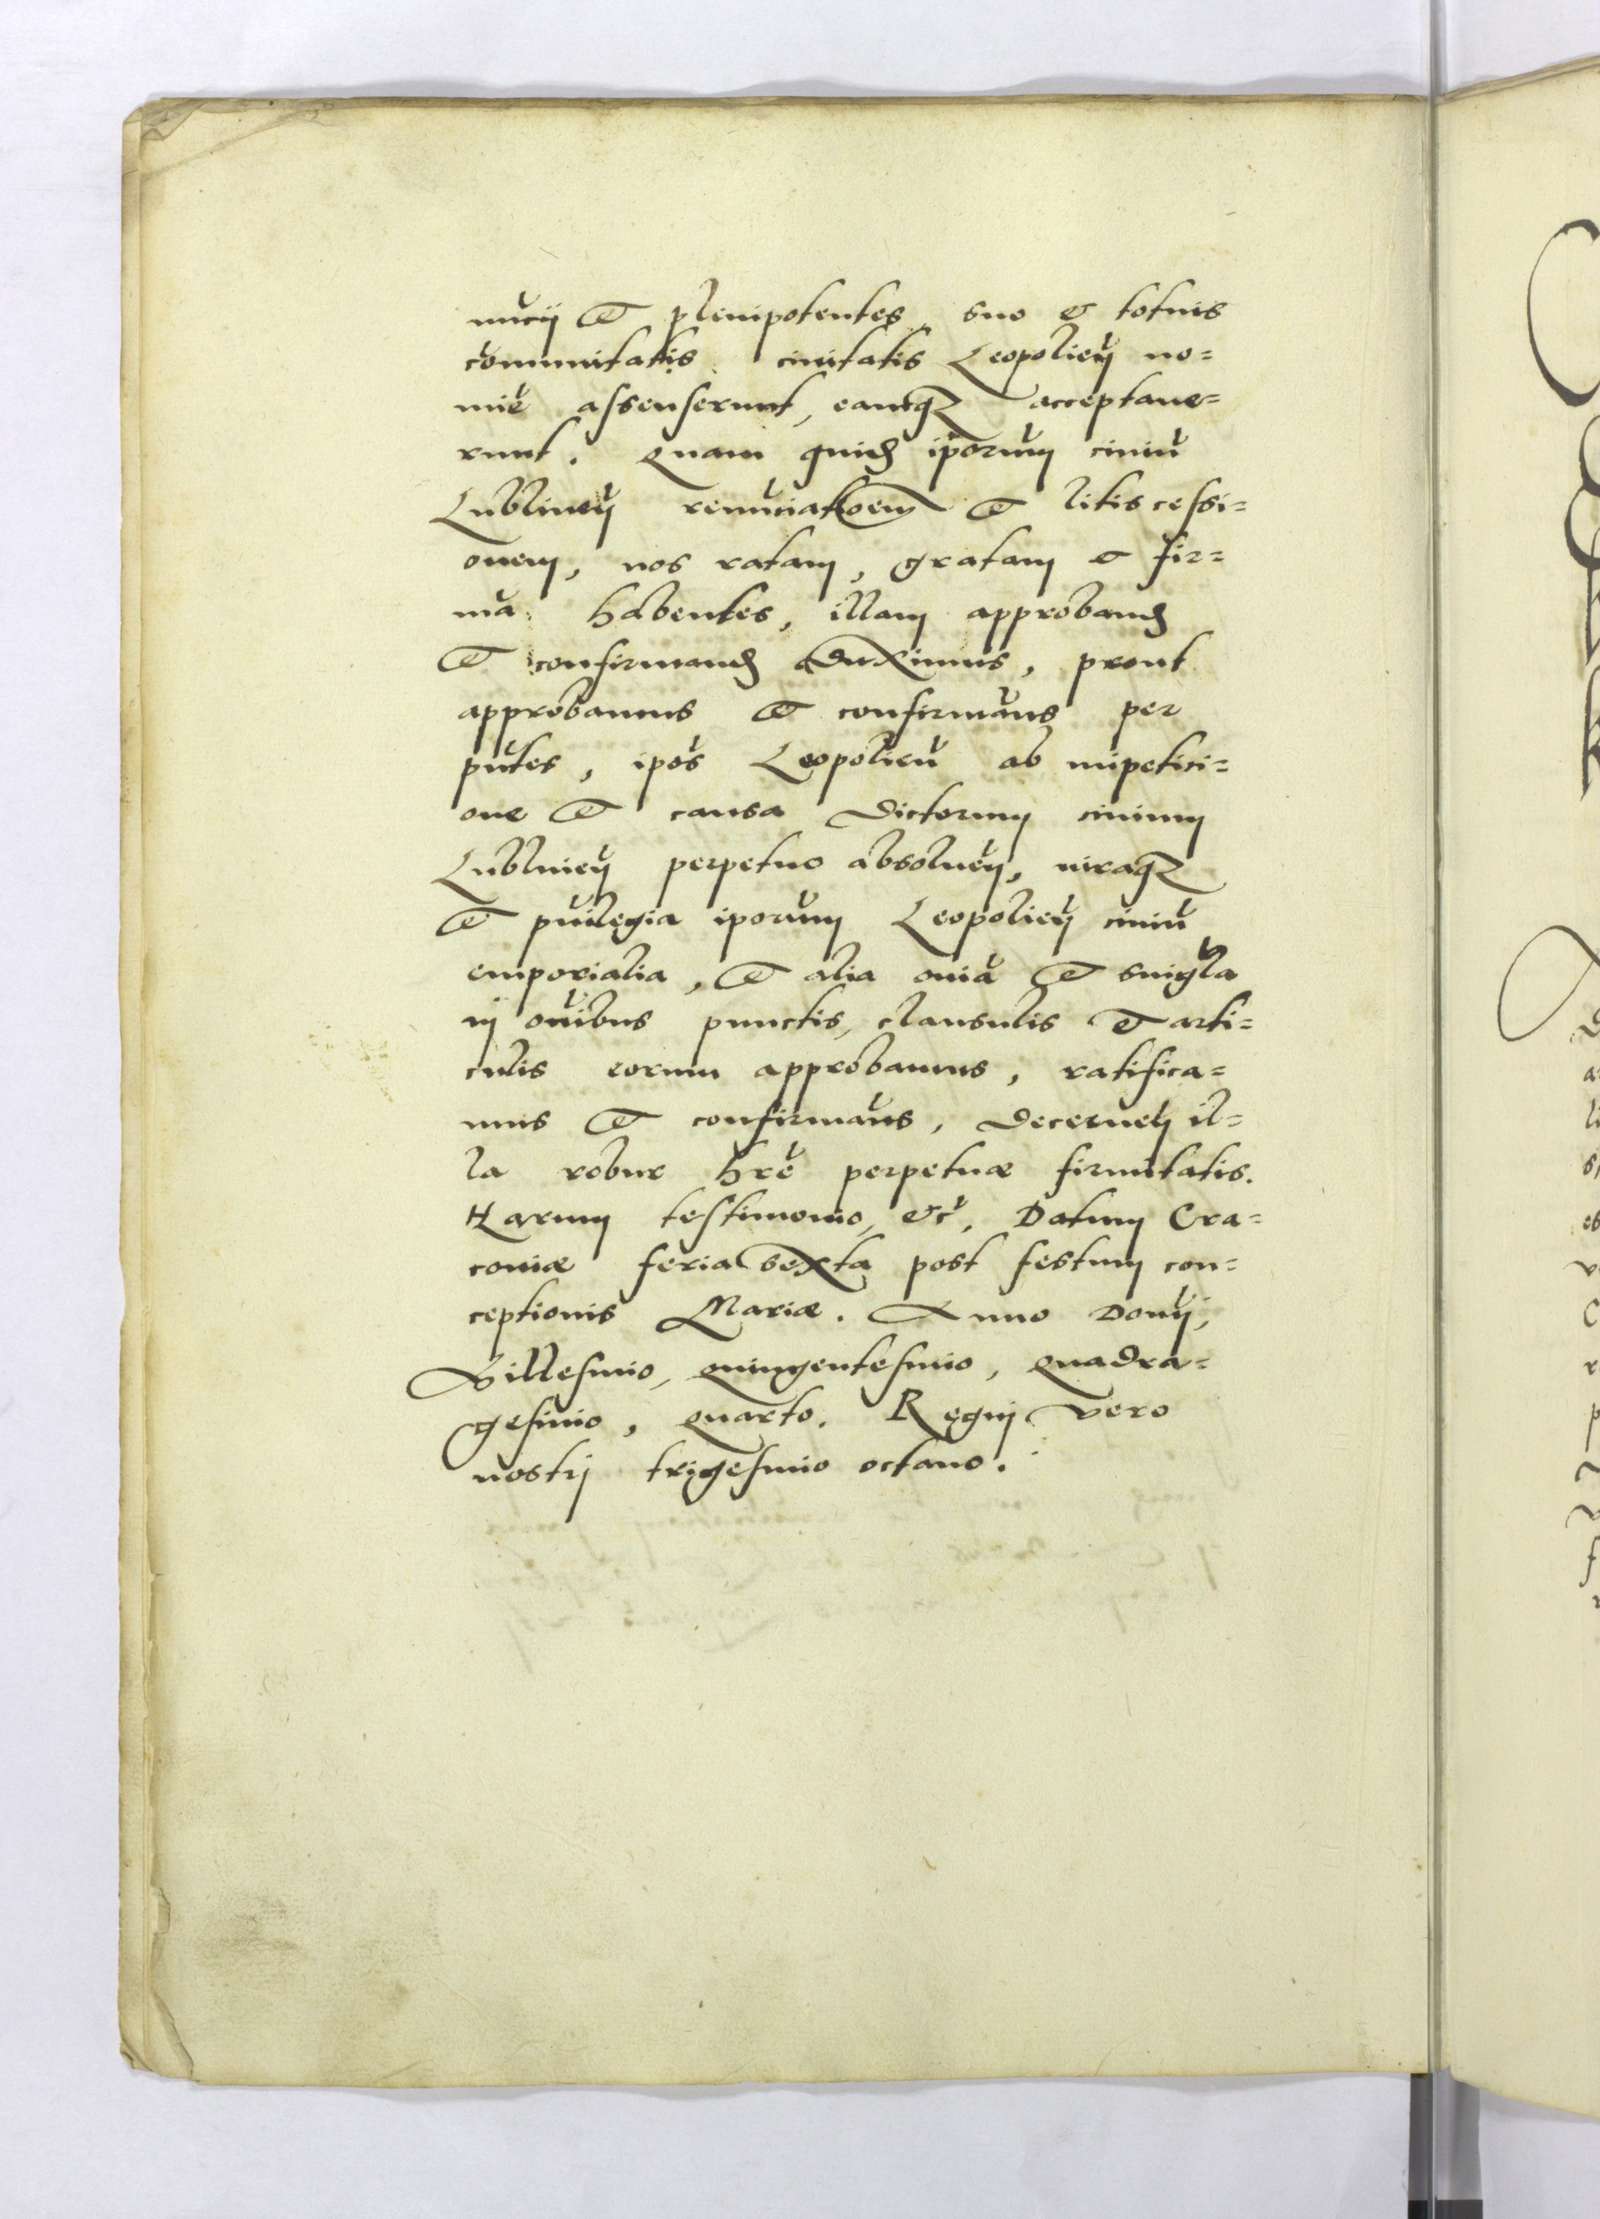 nucij et plenipotentes suo et totius
comunitatis civitatis Leopolień no=
mie assenserunt, eamq3 acceptave=
runt. Quam quid iporum civiū
Lublineń renuciatioem et litis cessi=
onem, nos ratam, gratam et fir=
mā habentes, illam approband
et confirmand duximus, prout
approbamus et confirmaūs per
pūtes, ipos Leopolień ab impetici=
one et causa dictorum civium
Lublineń perpetuo absolueń, iuraq3
et puilegia iporum Leopolień civiū
emporialia, et alia oniā et singla
in oībus punctis, clausulis et arti=
culis eorum approbamus, ratifica=
mus et confirmaūs, decerneń il=
la robur hrē perpetuæ firmitatis.
Harum testimonio, etc̃, Datum Cra=
coviæ feria sexta post festum con=
ceptionis Mariæ. Anno Domi,
Millesimo, quingentesimo, quadra=
gesimo, quarto. Regni vero
nostrj trigesimo octavo.